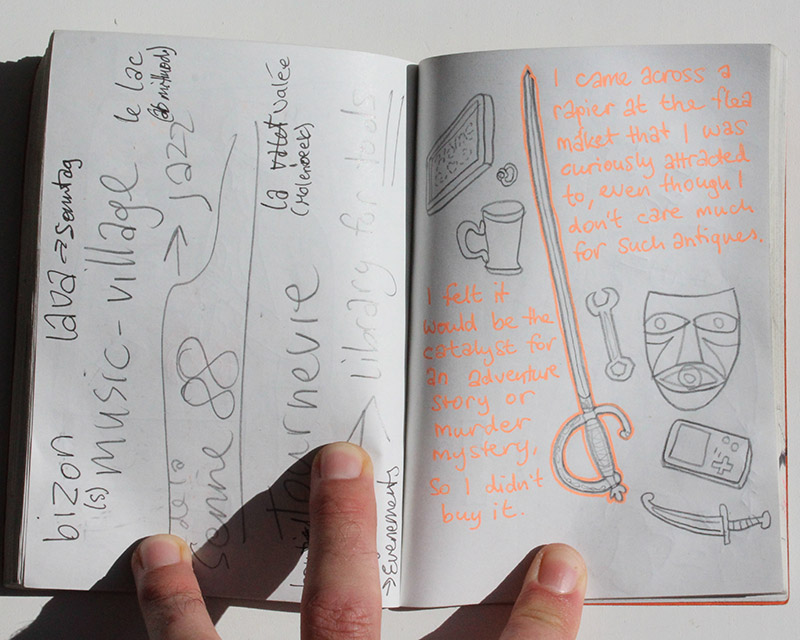 bizon lava → Sonntag
(s) music-village . le lac
→ jazz
de la
Senne 88
la Valée
(Molenbeek)
tournevie
→ library for tools
→ Evenements
I came across a
rapier at the flea
maket that I was
curiously attracted
to, even though I
don't care much
for such antiques.
I felt it
would be the
catalyst for
an adventure
story or
murder
mystery,
So I didn't
buy it.